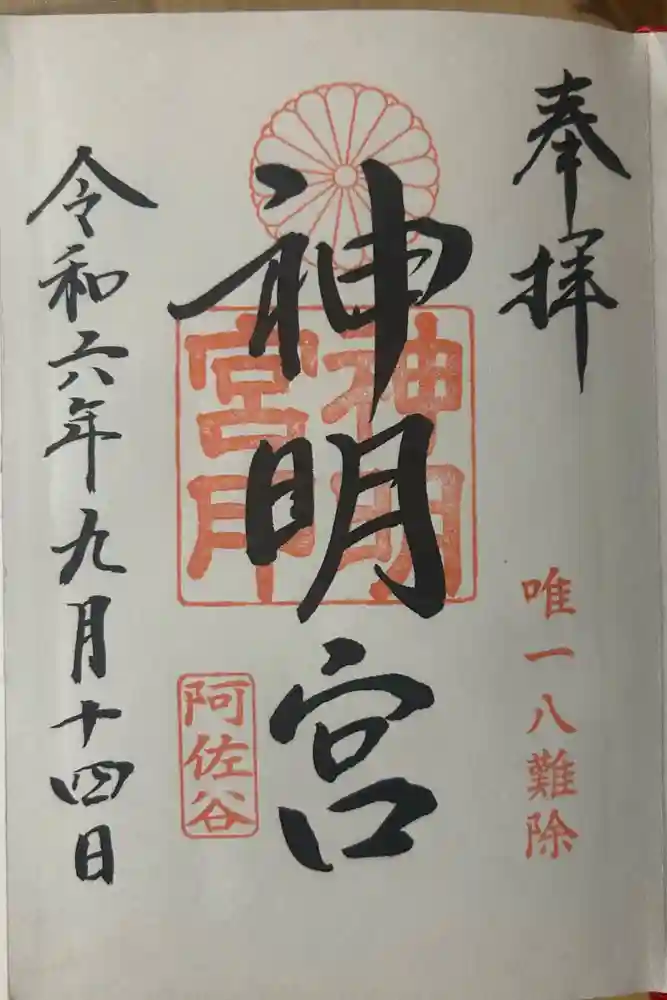 奉拝
唯一八難除
神明宮
神明
宮印
阿佐谷
令和六年九月十四日